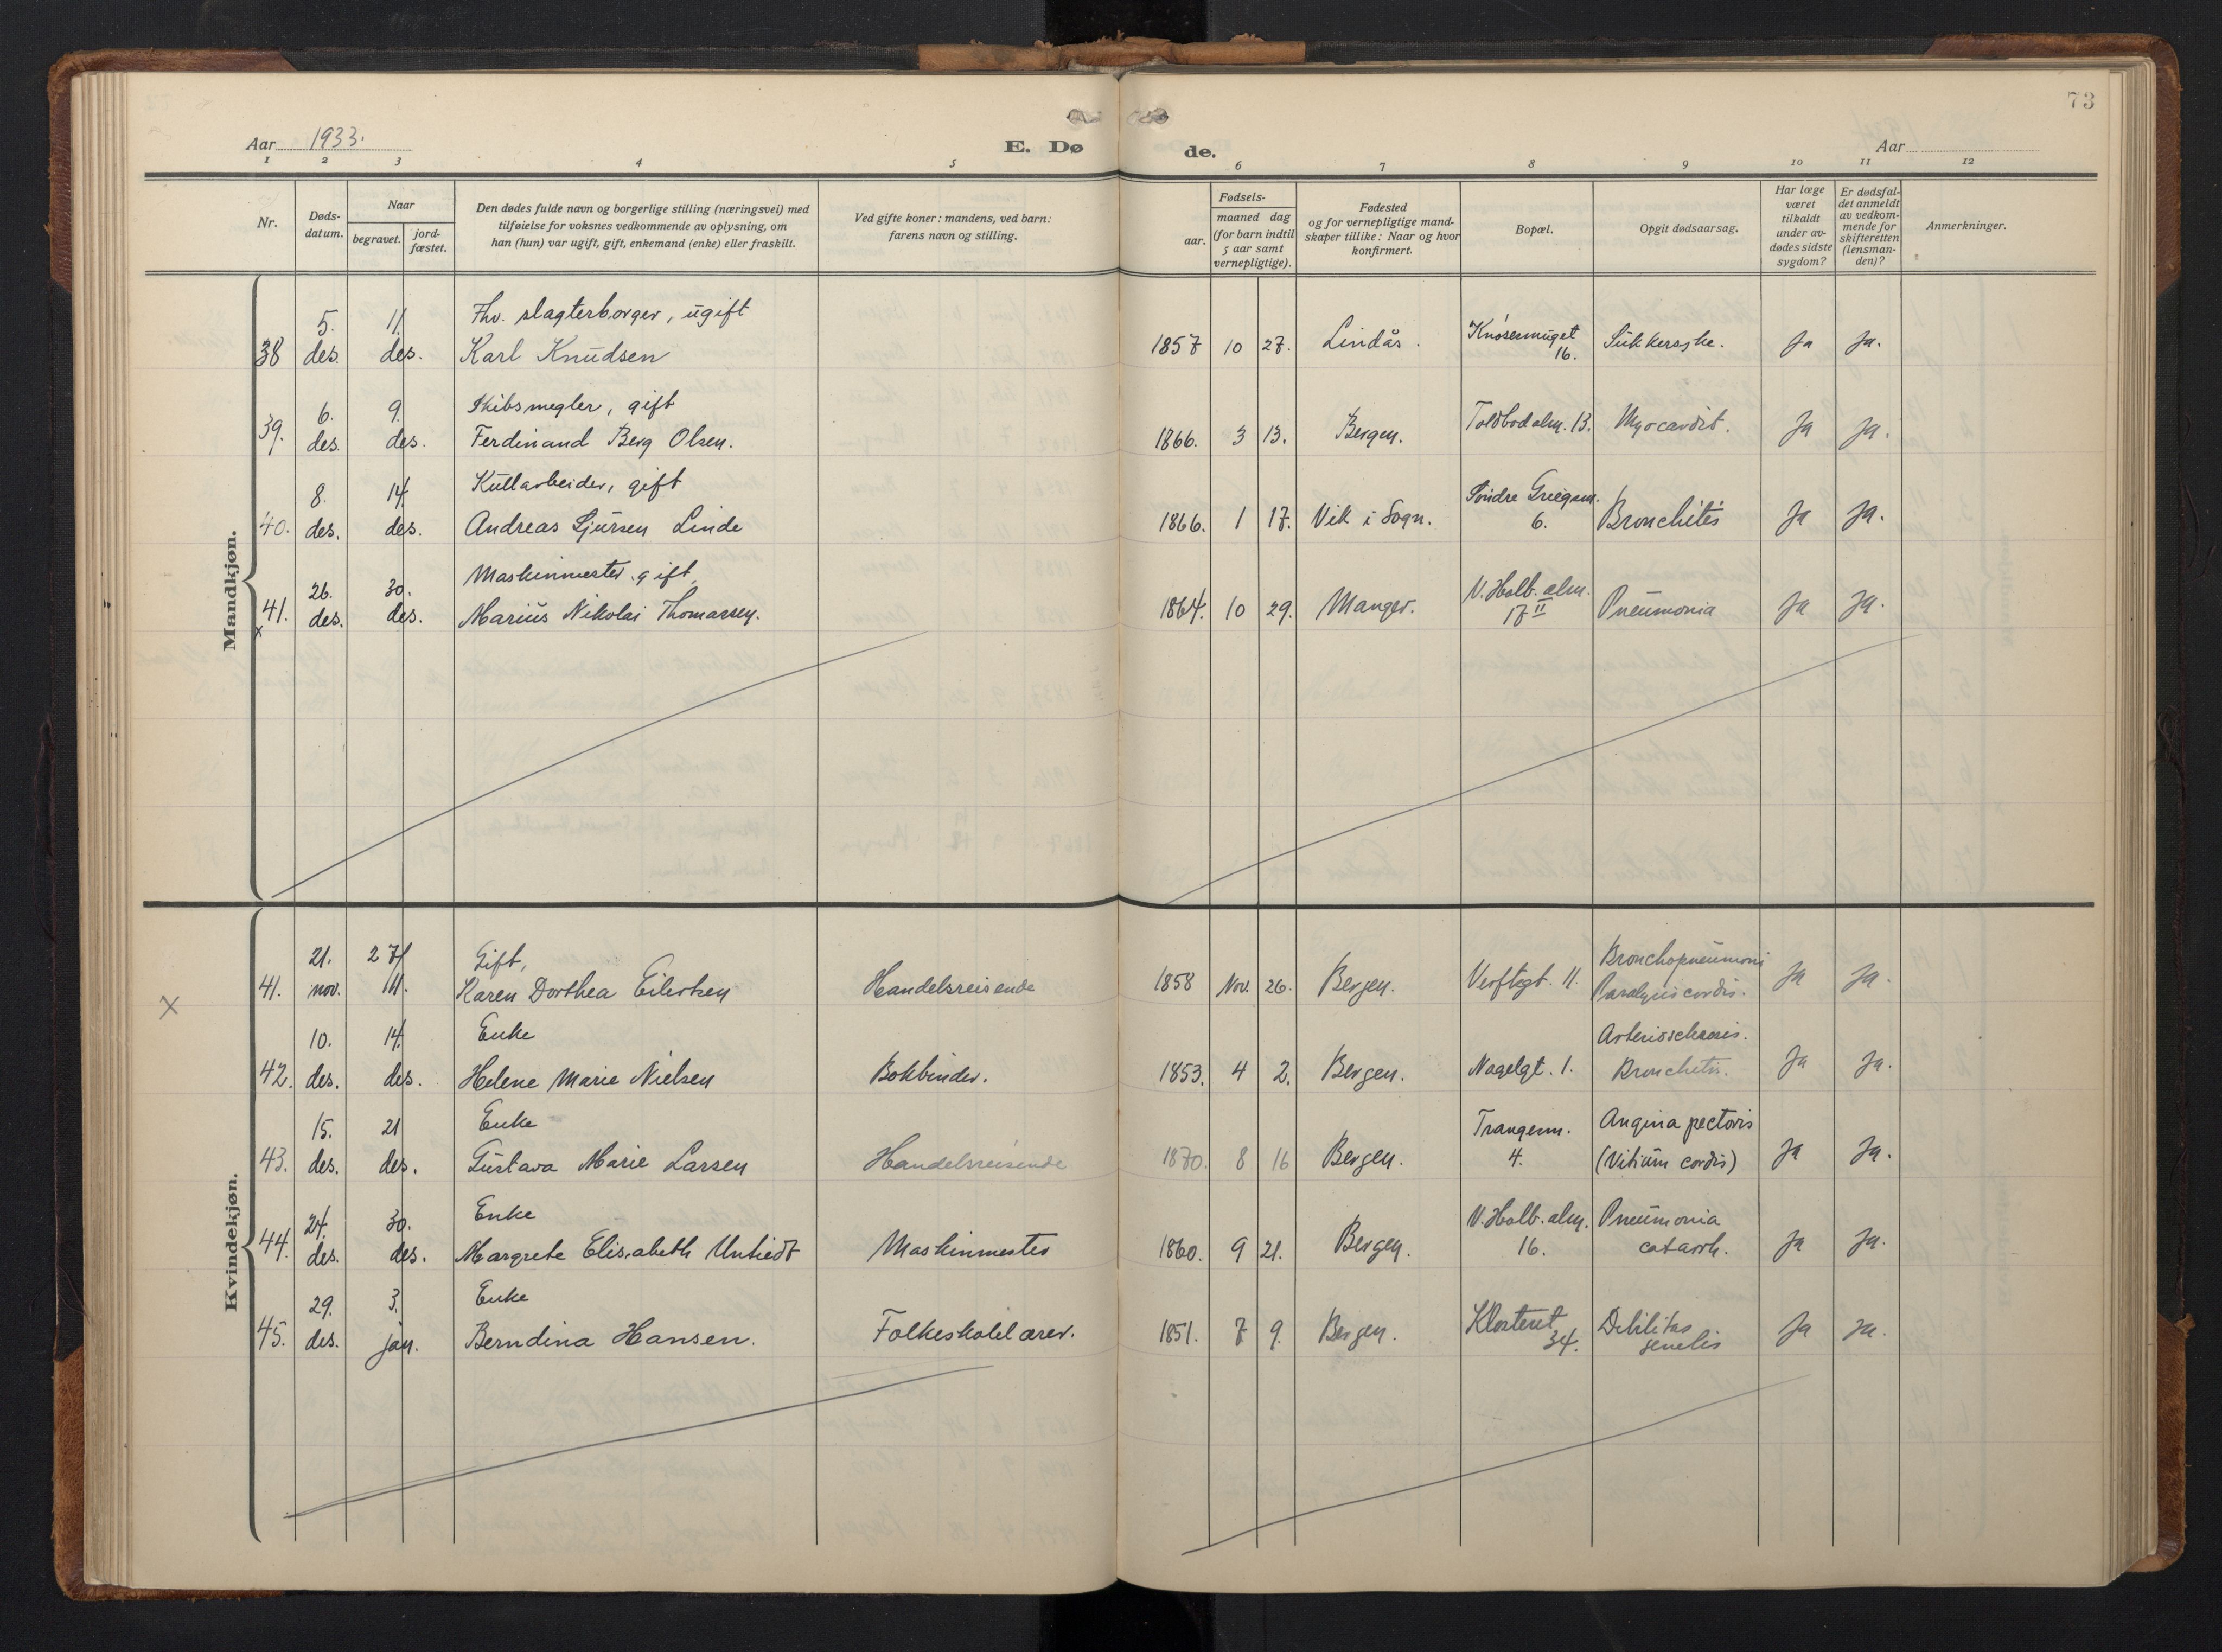 73
Aar 1933.
E. Døde.
Aar
1 2 3 4 5 6 7 8 9 10 11 12
Nr.
Døds-
datum.
Naar
begravet.
jord-
fæstet.
Den dødes fulde navn og borgerlige stilling (næringsvei) med
tilføielse for voksnes vedkommende av oplysning, om
han (hun) var ugift, gift, enkemand (enke) eller fraskilt.
Ved gifte koner: mandens, ved barn:
farens navn og stilling.
Fødsels-
aar.
maaned dag
(for barn indtil
5 aar samt
vernepligtige).
Fødested
og for vernepligtige mand-
skaper tillike: Naar og hvor
konfirmert.
Bopæl.
Opgit dødsaarsag.
Har læge
været
tilkaldt
under av-
dødes sidste
sygdom?
Er dødsfal-
det anmeldt
av vedkom-
mende for
skifteretten
(lensman-
den)?
Anmerkninger.
Mandkjøn.
5. 11. Fhv. slagterborger, ugift Knøsesmuget
38 des. des. Karl Knudsen 1857 10 27. Lindås. 16. Sukkersyke. Ja Ja.
6. 9. Skibsmegler, gift
39. des. des. Ferdinand Berg Olsen. 1866. 3 13. Bergen. Toldbodalm. 13. Myocardit. Ja Ja.
8. 14. Kullarbeider, gift Søndre
40. des. des. Andreas Sjursen Linde 1866. 1 17. Vik i Sogn. 6. Bronchitis Ja Ja.
26. 30. Maskinmester, gift, V. Holb. alm.
41. des. des. Marius Nikolai Thomassen. 1864. 10 29. Manger. 17 II Pneumonia Ja Ja.
x
Kvindekjøn.
21. 27/ Gift, Bronchopneumoni
41. nov. 11. Karen Dorthea Eilertsen Handelsreisende 1858 Nov. 26. Bergen. Verftsgt. 11. Paralysis cordis. Ja Ja.
x
10. 14. Enke Arteriosclerosis.
42. des. des. Helene Marie Nielsen Bokbinder. 1853. 4 2. Bergen. Nagelgt. 1. Bronchitis. Ja Ja.
15. 21 Enke Trangesm. Angina pectoris
43. des. des. Gustava Marie Larsen Handelsreisende 1870. 8 16 Bergen. 4. (Vitium cordis) Ja Ja.
24. 30. Enke V. Holb. alm. Pneumonia
44. des. des. Margrete Elisabeth Untiedt Maskinmester 1860. 9 21. Bergen. 16. catarrh. Ja Ja.
29. 3. Enke Klosteret Debilitas
45. des. jan. Berndina Hansen. Folkeskolelærer. 1851. 7 9. Bergen. 34. senilis Ja Ja.